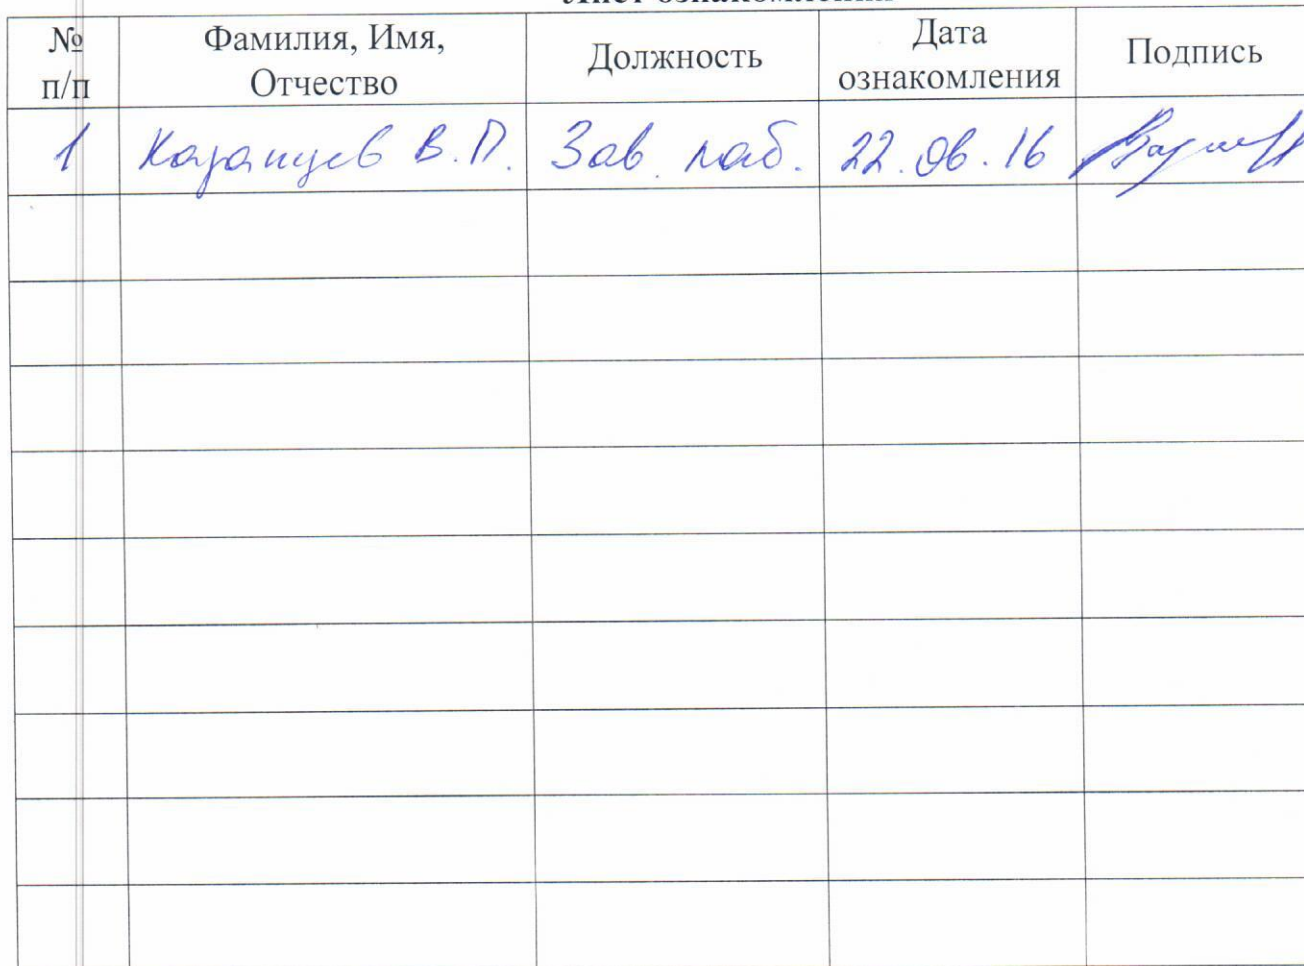 Лист ознакомления
№ п/п Фамилия, Имя, Отчество Должность Дата ознакомления Подпись
1 Казанцев В.П. Зав. лаб. 22.06.16